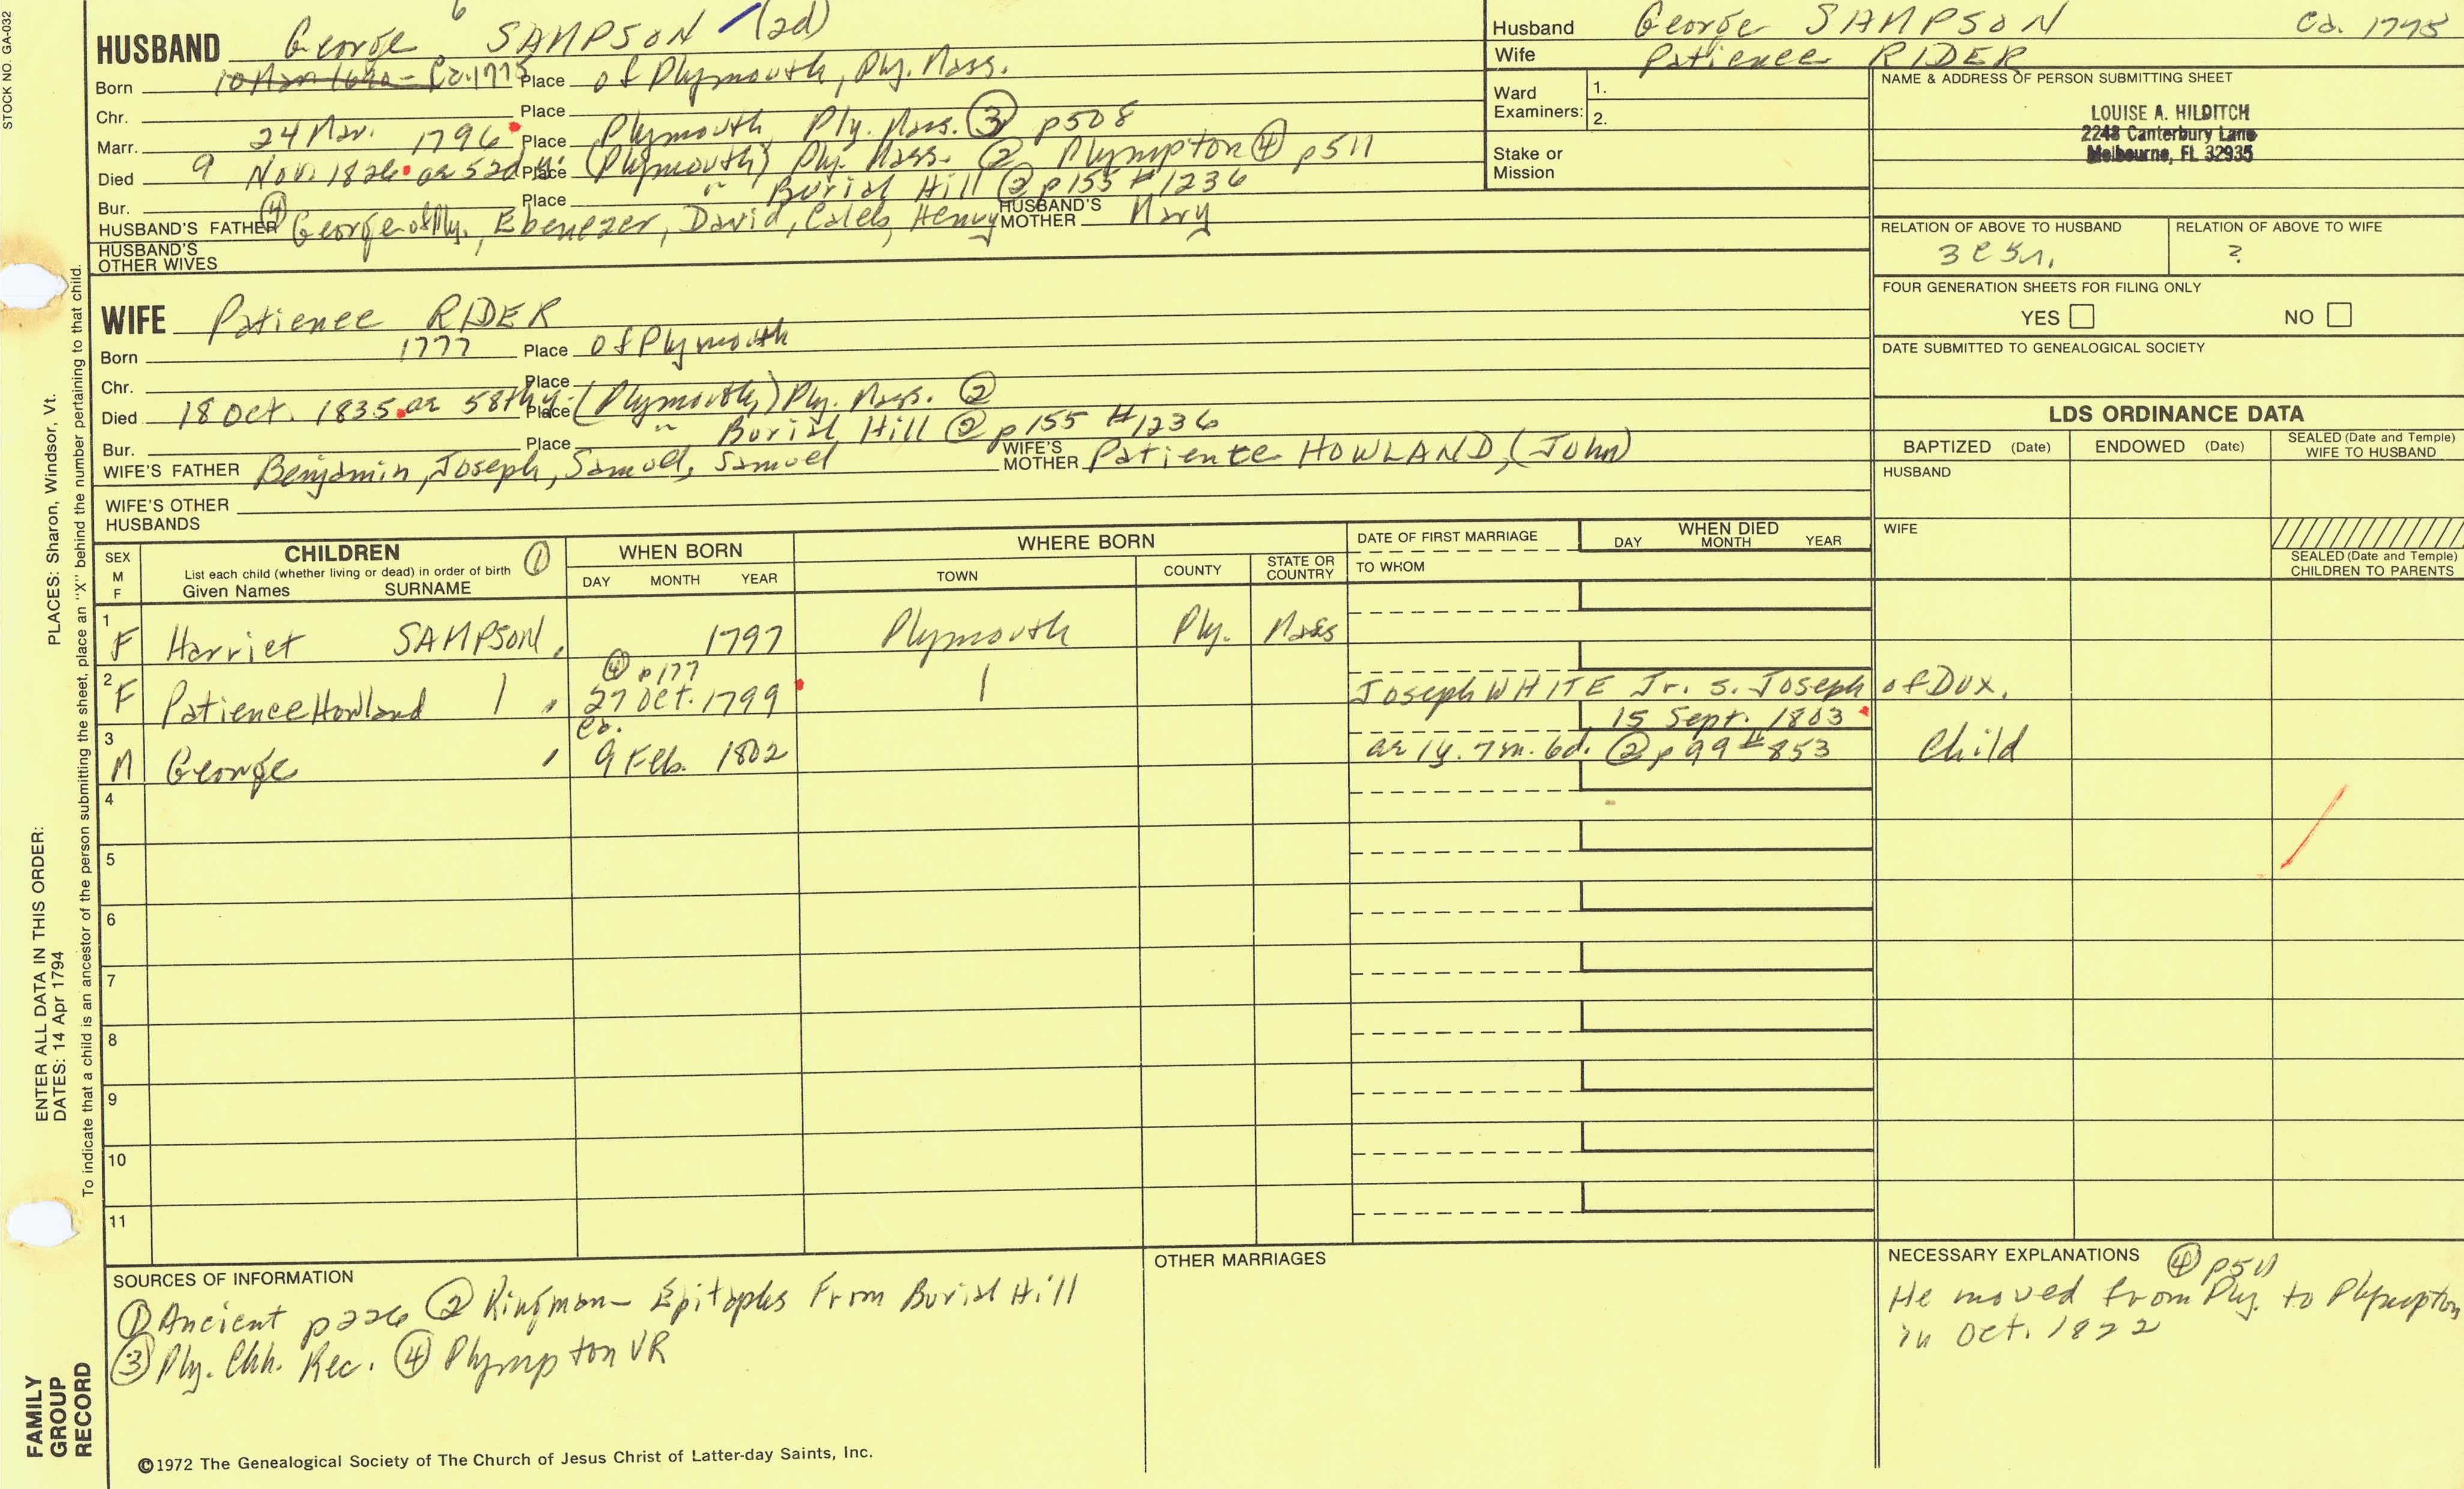 STOCK NO. GA-032
6
HUSBAND George SAMPSON (2d)
Born Ca. 1775 Place of Plymouth, Ply. Mass.
Chr. Place
Marr. 24 Mar. 1796 Place Plymouth Ply. Mass. ③ p508
Died 9 Nov. 1826 ae 52d y. Place (Plymouth) Ply. Mass. ② Plympton ④ p511
Bur. Place " Burial Hill ② p155 #1236
HUSBAND'S FATHER ④ George of Ply., Ebenezer, David, Caleb, Henry HUSBAND'S MOTHER Mary
HUSBAND'S OTHER WIVES
Husband George SAMPSON Ca. 1775
Wife Patience RIDER
Ward Examiners: 1.
2.
Stake or Mission
NAME & ADDRESS OF PERSON SUBMITTING SHEET
LOUISE A. HILDITCH
2248 Canterbury Lane
Melbourne, FL 32935
RELATION OF ABOVE TO HUSBAND RELATION OF ABOVE TO WIFE
?
FOUR GENERATION SHEETS FOR FILING ONLY
YES NO
DATE SUBMITTED TO GENEALOGICAL SOCIETY
WIFE Patience RIDER
Born 1777 Place of Plymouth
Chr. Place
Died 18 Oct. 1835 ae 58th y. Place (Plymouth) Ply. Mass. ②
Bur. Place " Burial Hill ② p155 #1236
WIFE'S FATHER Benjamin, Joseph, Samuel, Samuel WIFE'S MOTHER Patience HOWLAND, (John)
WIFE'S OTHER HUSBANDS
LDS ORDINANCE DATA
BAPTIZED (Date) ENDOWED (Date) SEALED (Date and Temple) WIFE TO HUSBAND
HUSBAND
WIFE
SEALED (Date and Temple) CHILDREN TO PARENTS
SEX M F CHILDREN ① WHEN BORN WHERE BORN DATE OF FIRST MARRIAGE WHEN DIED
List each child (whether living or dead) in order of birth
Given Names SURNAME DAY MONTH YEAR TOWN COUNTY STATE OR COUNTRY TO WHOM DAY MONTH YEAR
1 F Harriet SAMPSON 1797 Plymouth Ply. Mass
④ p177
2 F Patience Howland 27 Oct. 1799 Joseph WHITE Jr. s. Joseph of Dux.
ca. 15 Sept. 1803
3 M George 9 Feb. 1802 ae 1y. 7m. 6d. ② p99 #853 Child
4
5
6
7
8
9
10
11
SOURCES OF INFORMATION
① Ancient p226 ② Kingman - Epitaphs From Burial Hill
③ Ply. Chh. Rec. ④ Plympton VR
OTHER MARRIAGES
NECESSARY EXPLANATIONS ④ p511
He moved from Ply. to Plympton
in Oct. 1822
©1972 The Genealogical Society of The Church of Jesus Christ of Latter-day Saints, Inc.
ENTER ALL DATA IN THIS ORDER:
DATES: 14 Apr 1794
PLACES: Sharon, Windsor, Vt.
To indicate that a child is an ancestor of the person submitting the sheet, place an "X" behind the number pertaining to that child.
FAMILY
GROUP
RECORD